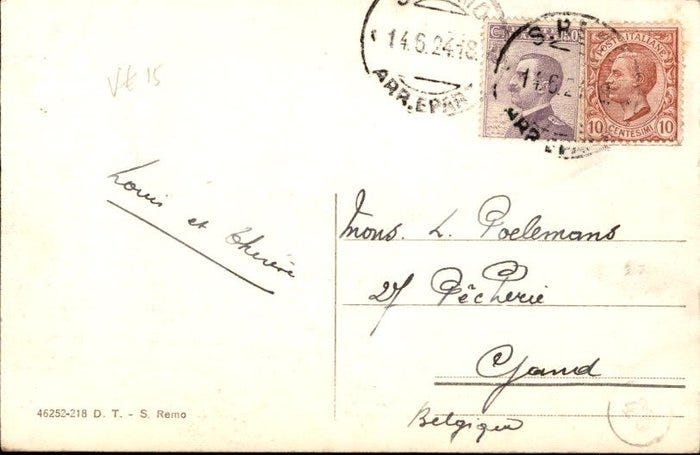 14.6.24.18
ARR. E PAR
S.RE
14.6.2
ARR. E PA
POSTE ITALIANE
10 CENTESIMI 10
Vt 15
Louis et Thérèse
Mons. L. Poelemans
27 Pêcherie
Gand
Belgique
46252-218 D. T. - S. Remo